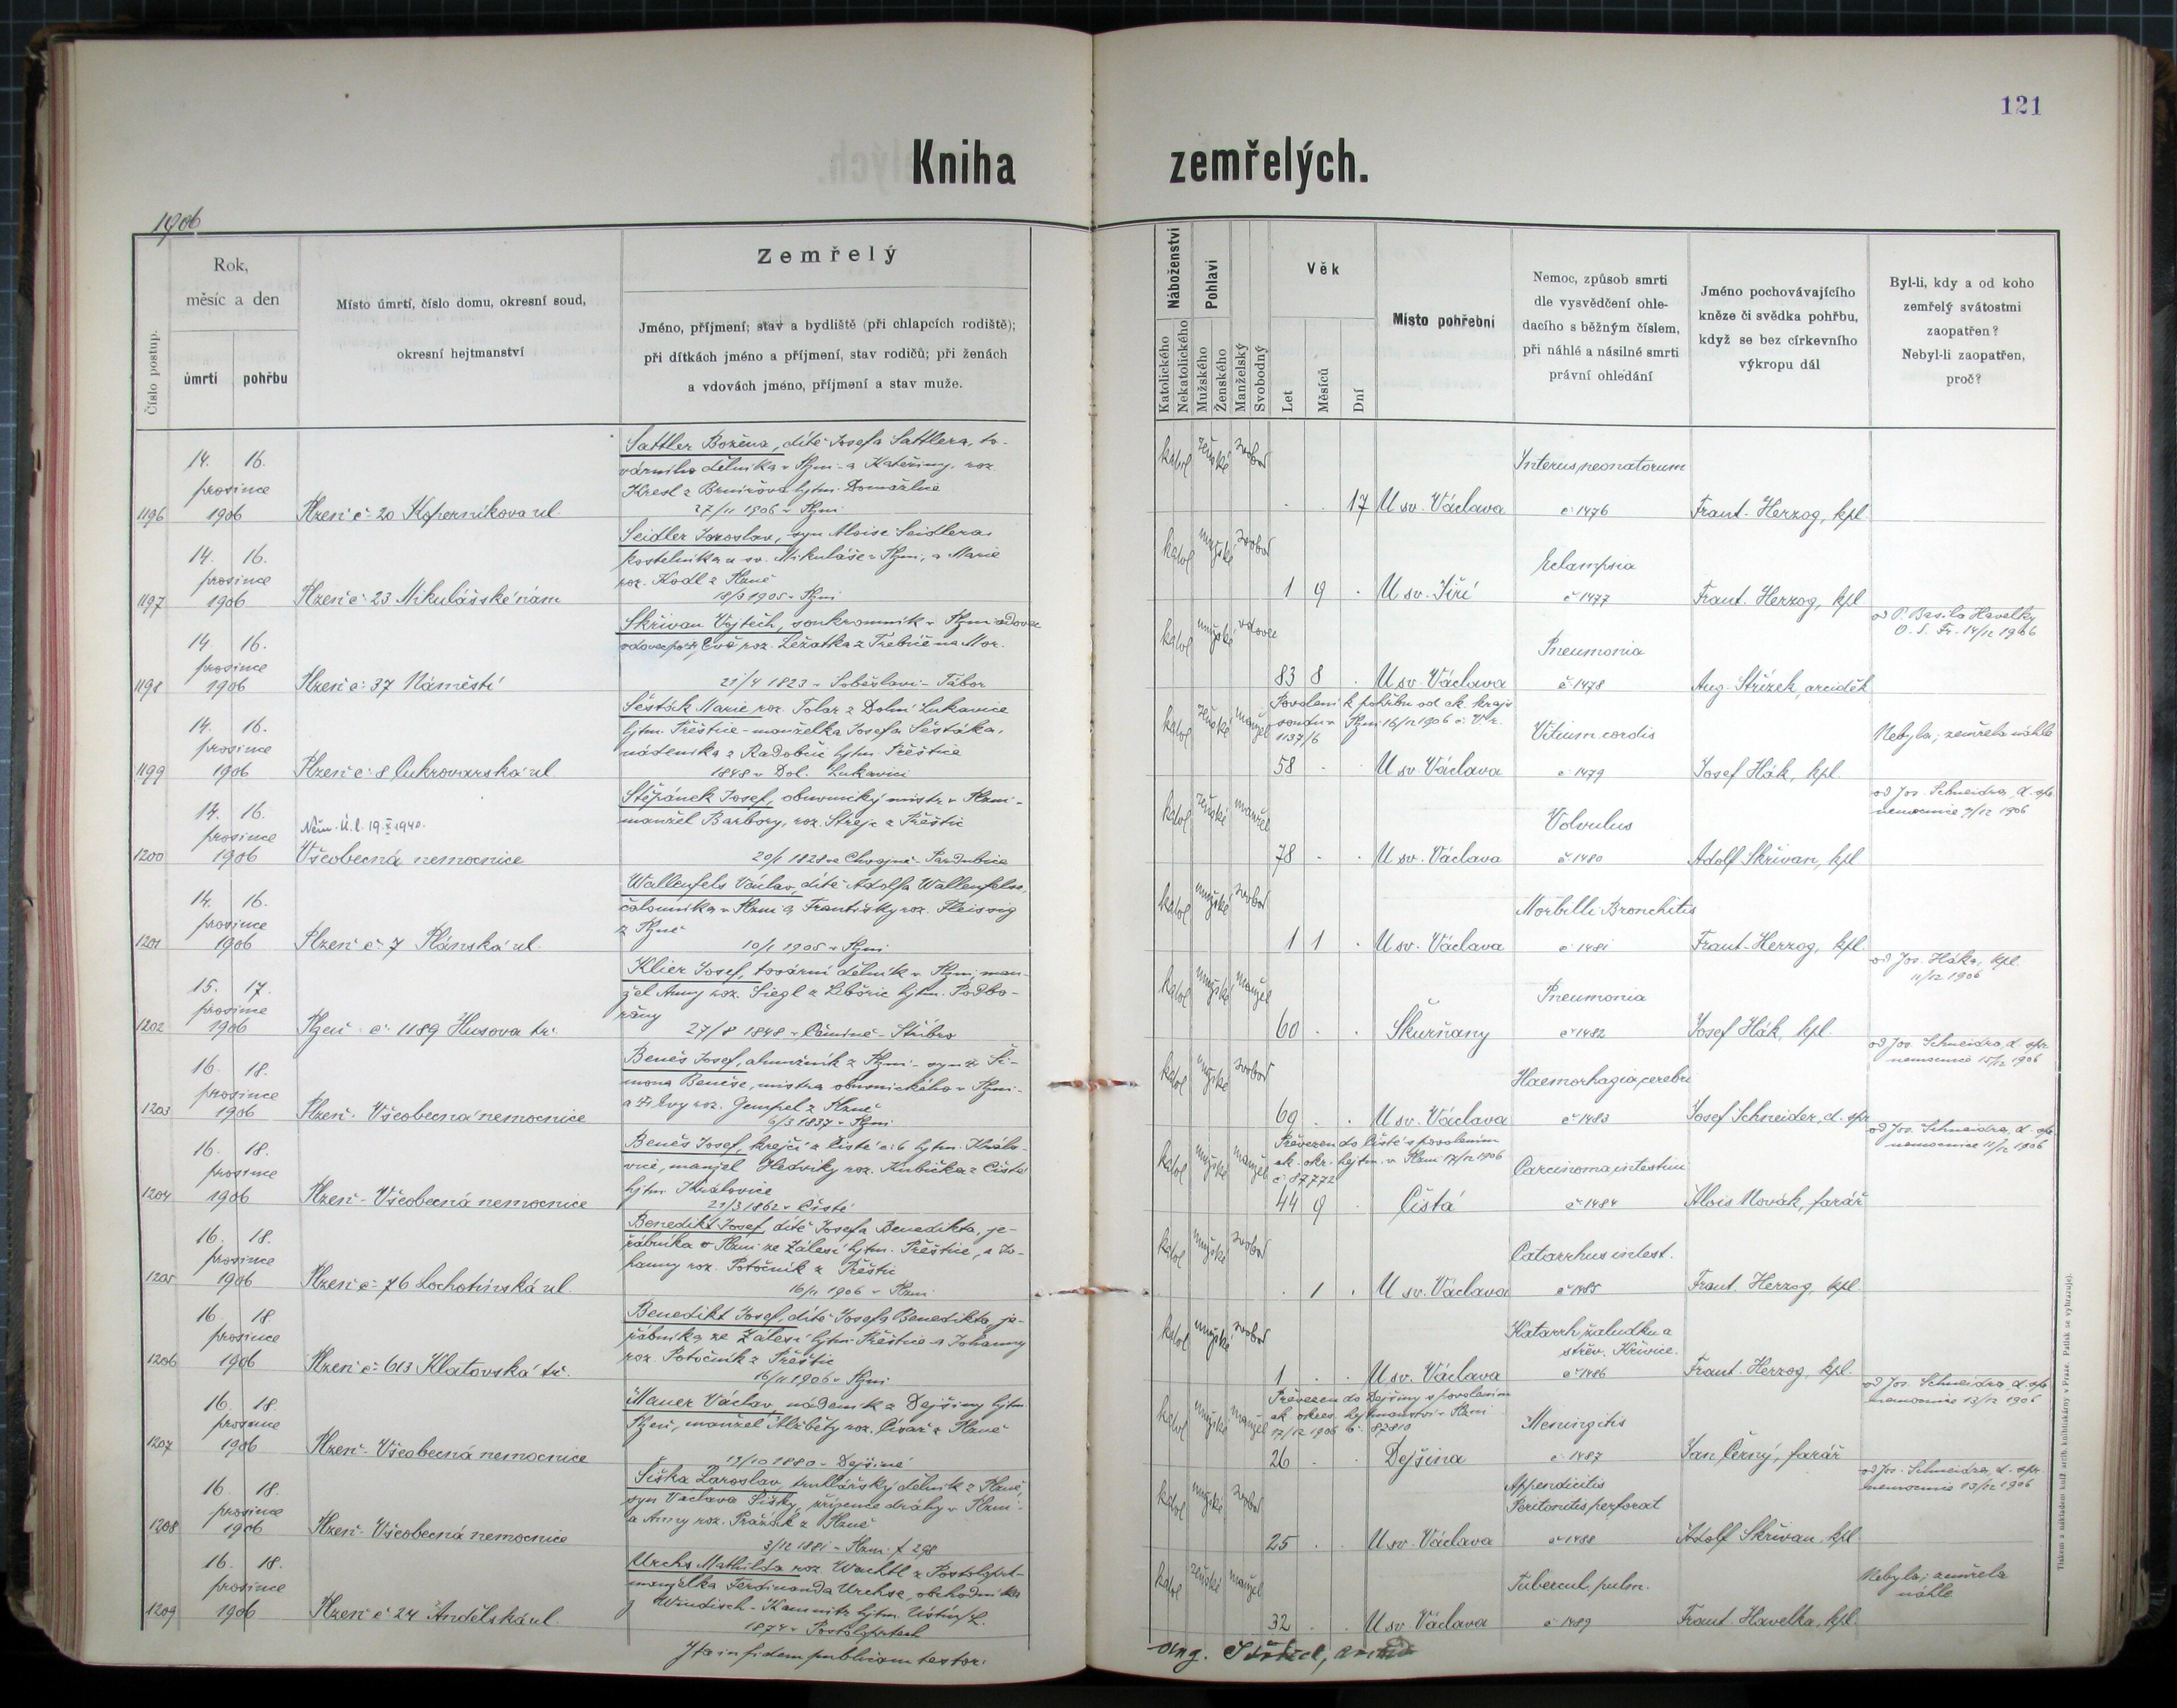 121
Kniha zemřelých.
1906
Číslo postup.
Rok,
měsíc a den
úmrtí
pohřbu
Místo úmrtí, číslo domu, okresní soud,
okresní hejtmanství
Zemřelý
Jméno, příjmení; stav a bydliště (při chlapcích rodiště);
při dítkách jméno a příjmení, stav rodičů; při ženách
a vdovách jméno, příjmení a stav muže.
Náboženství
Katolického
Nekatolického
Pohlaví
Mužského
Ženského
Manželský
Svobodný
Věk
Let
Měsíců
Dní
Místo pohřební
Nemoc, způsob smrti
dle vysvědčení ohle-
dacího s běžným číslem,
při náhlé a násilné smrti
právní ohledání
Jméno pochovávajícího
kněze či svědka pohřbu,
když se bez církevního
výkropu dál
Byl-li, kdy a od koho
zemřelý svátostmi
zaopatřen?
Nebyl-li zaopatřen,
proč?
1196
14. 16.
prosince
1906
Plzeň č. 20 Koperníkova ul.
Sattler Božena, dítě Josefa Sattlera, to-
várního dělníka v Plzni a Kateřiny, roz.
Kresl z Brnířova hjtm. Domažlice
27/11 1906 v Plzni
katol ženské svobod
17 U sv. Václava
Icterus neonatorum
č. 1476
Frant. Herzog, kpl.
1197
14. 16.
prosince
1906
Plzeň č. 23 Mikulášské nám
Seidler Jaroslav, syn Aloise Seidlera,
kostelníka u sv. Mikuláše v Plzni, a Marie
roz. Kodl z Plzně
18/3 1905 v Plzni
katol mužské svobod
1 9 U sv. Jiří
Eclampsia
č. 1477
Frant. Herzog, kpl
1198
14. 16.
prosince
1906
Plzeň č. 37 Náměstí
Skřivan Vojtěch, soukromník v Plzni vdovec
vdovec po Evě roz. Ležatka z Třebíče na Mor.
21/4 1823 v Soběslavi - Tábor
katol mužské vdovec
83 8 U sv. Václava
Pneumonia
č. 1478
Aug. Střízek, arciděk
od P. Basila Havelky
O. S. Fr. 14/12 1906
1199
14. 16.
prosince
1906
Plzeň č. 8 Cukrovarská ul
Šesták Marie roz. Tolar z Dolní Lukavice
hjtm. Přeštice - manželka Josefa Šestáka,
nádeníka z Radobčic hjtm. Přeštice
1848 v Dol. Lukavici
katol ženské manžel
Povolení k pohřbu od ck. kraj.
soudu v Plzni 16/12 1906 č. Vr.
1137/6
58 U sv. Václava
Vitium cordis
č. 1479
Josef Hák, kpl.
Nebyla; zemřela náhle
1200
14. 16.
prosince
1906
Něm. Ú. l. 19. X. 1940.
Všeobecná nemocnice
Štěpánek Josef, obuvnický mistr v Plzni -
manžel Barbory, roz. Strejc z Přeštic
20/1 1828 ve Chvojně - Pardubice
katol ženské manžel
78 U sv. Václava
Volvulus
č. 1480
Adolf Skřivan, kpl
od Jos. Schneidra, d. spr.
nemocnice 7/12 1906
1201
14. 16.
prosince
1906
Plzeň č. 7 Plánská ul.
Wallenfels Václav, dítě Adolfa Wallenfelse,
čalouníka v Plzni a Františky roz. Fleissig
z Plzně
10/1 1905 v Plzni
katol mužské svobod
1 1 U sv. Václava
Morbilli Bronchitis
č. 1481
Frant. Herzog, kpl.
1202
15. 17.
prosince
1906
Plzeň č. 1189 Husova tř.
Klier Josef, tovární dělník v Plzni, man-
žel Anny roz. Siegl z Libořic hjtm. Podbo-
řany
27/8 1848 v Ošmině - Stříbro
katol mužské manžel
60 Skurňany
Pneumonia
č. 1482
Josef Hák, kpl.
od Jos. Háka, kpl.
11/12 1906
1203
16. 18.
prosince
1906
Plzeň - Všeobecná nemocnice
Beneš Josef, almužník z Plzni - syn Ši-
mona Beneše, mistra obuvnického v Plzni -
a Evy roz. Gempel z Plzně
6/3 1837 v Plzni
katol mužské svobod
69 U sv. Václava
Haemorhagia cerebri
č. 1483
Josef Schneider, d. spr
od Jos. Schneidra, d. spr
nemocnice 15/12 1906
1204
16. 18.
prosince
1906
Plzeň - Všeobecná nemocnice
Beneš Josef, krejčí z Čisté č. 6 hjtm. Králo-
vice, manžel Hedviky roz. Kubíčka z Čisté
hjtm. Kralovice
21/3 1862 v Čisté
katol mužské manžel
Převezen do Čisté s povolením
ck. okr. hejtm. v Plzni 17/12 1906
č. 87772
44 9 Čistá
Carcinoma intestini
č. 1484
Alois Novák, farář
od Jos. Schneidra, d. spr
nemocnice 11/12 1906
1205
16. 18.
prosince
1906
Plzeň č. 76 Lochotínská ul.
Benedikt Josef, dítě Josefa Benedikta, je-
řábníka v Plzni ze Zálesí hjtm. Přeštice, a Jo-
hanny roz. Potočník z Přeštic
16/11 1906 v Plzni
katol mužské svobod
1 U sv. Václava
Catarrhus intest.
č. 1485
Frant. Herzog, kpl
1206
16 18.
prosince
1906
Plzeň č. 613 Klatovská tř.
Benedikt Josef, dítě Josefa Benedikta, je-
řábníka ze Zálesí hjtm. Přeštice a Johanny
roz. Potočník z Přeštic
16/11 1906 v Plzni
katol mužské svobod
1 U sv. Václava
Katarrh žaludku a
střev. Křivice.
č. 1486
Frant. Herzog, kpl.
1207
16. 18.
prosince
1906
Plzeň - Všeobecná nemocnice
Mauer Václav, nádeník z Dejšiny hjtm.
Plzeň, manžel Alžběty roz. Císař z Plzně
19/10 1880 v Dejšině
katol mužské manžel
Převezen do Dejšiny s povolením
ck. okres. hejtmanství v Plzni
17/12 1906 č. 87810
26 Dejšina
Meningitis
č. 1487
Jan Černý, farář
od Jos. Schneidra, d. spr
nemocnice 13/12 1906
1208
16. 18.
prosince
1906
Plzeň - Všeobecná nemocnice
Šiška Jaroslav, truhlářský dělník z Plzně,
syn Václava Šišky, zřízence dráhy v Plzni -
a Anny roz. Pražák z Plzně
3/12 1881 v Plzni f 298
katol mužské svobod
25 U sv. Václava
Appendicitis
Peritonitis perforat
č. 1488
Adolf Skřivan, kpl
od Jos. Schneidra, d. spr.
nemocnice 13/12 1906
1209
16. 18.
prosince
1906
Plzeň č. 24 Andělská ul
Urchs Mathilda roz. Wachtl z Postoloprt -
manželka Ferdinanda Urchse, obchodníka
z Windisch-Kamnitz hjtm. Ústí n/L.
1874 v Postoloprtech
katol ženské manžel
32 U sv. Václava
Tubercul. pulm.
č. 1489
Frant. Havelka, kpl.
Nebyla; zemřela
náhle
Ita in fidem publicam testor:
Aug. Střízek,
Tiskem a nákladem knih. artih. knihtiskárny v Praze. Patisk se vyhrazuje.